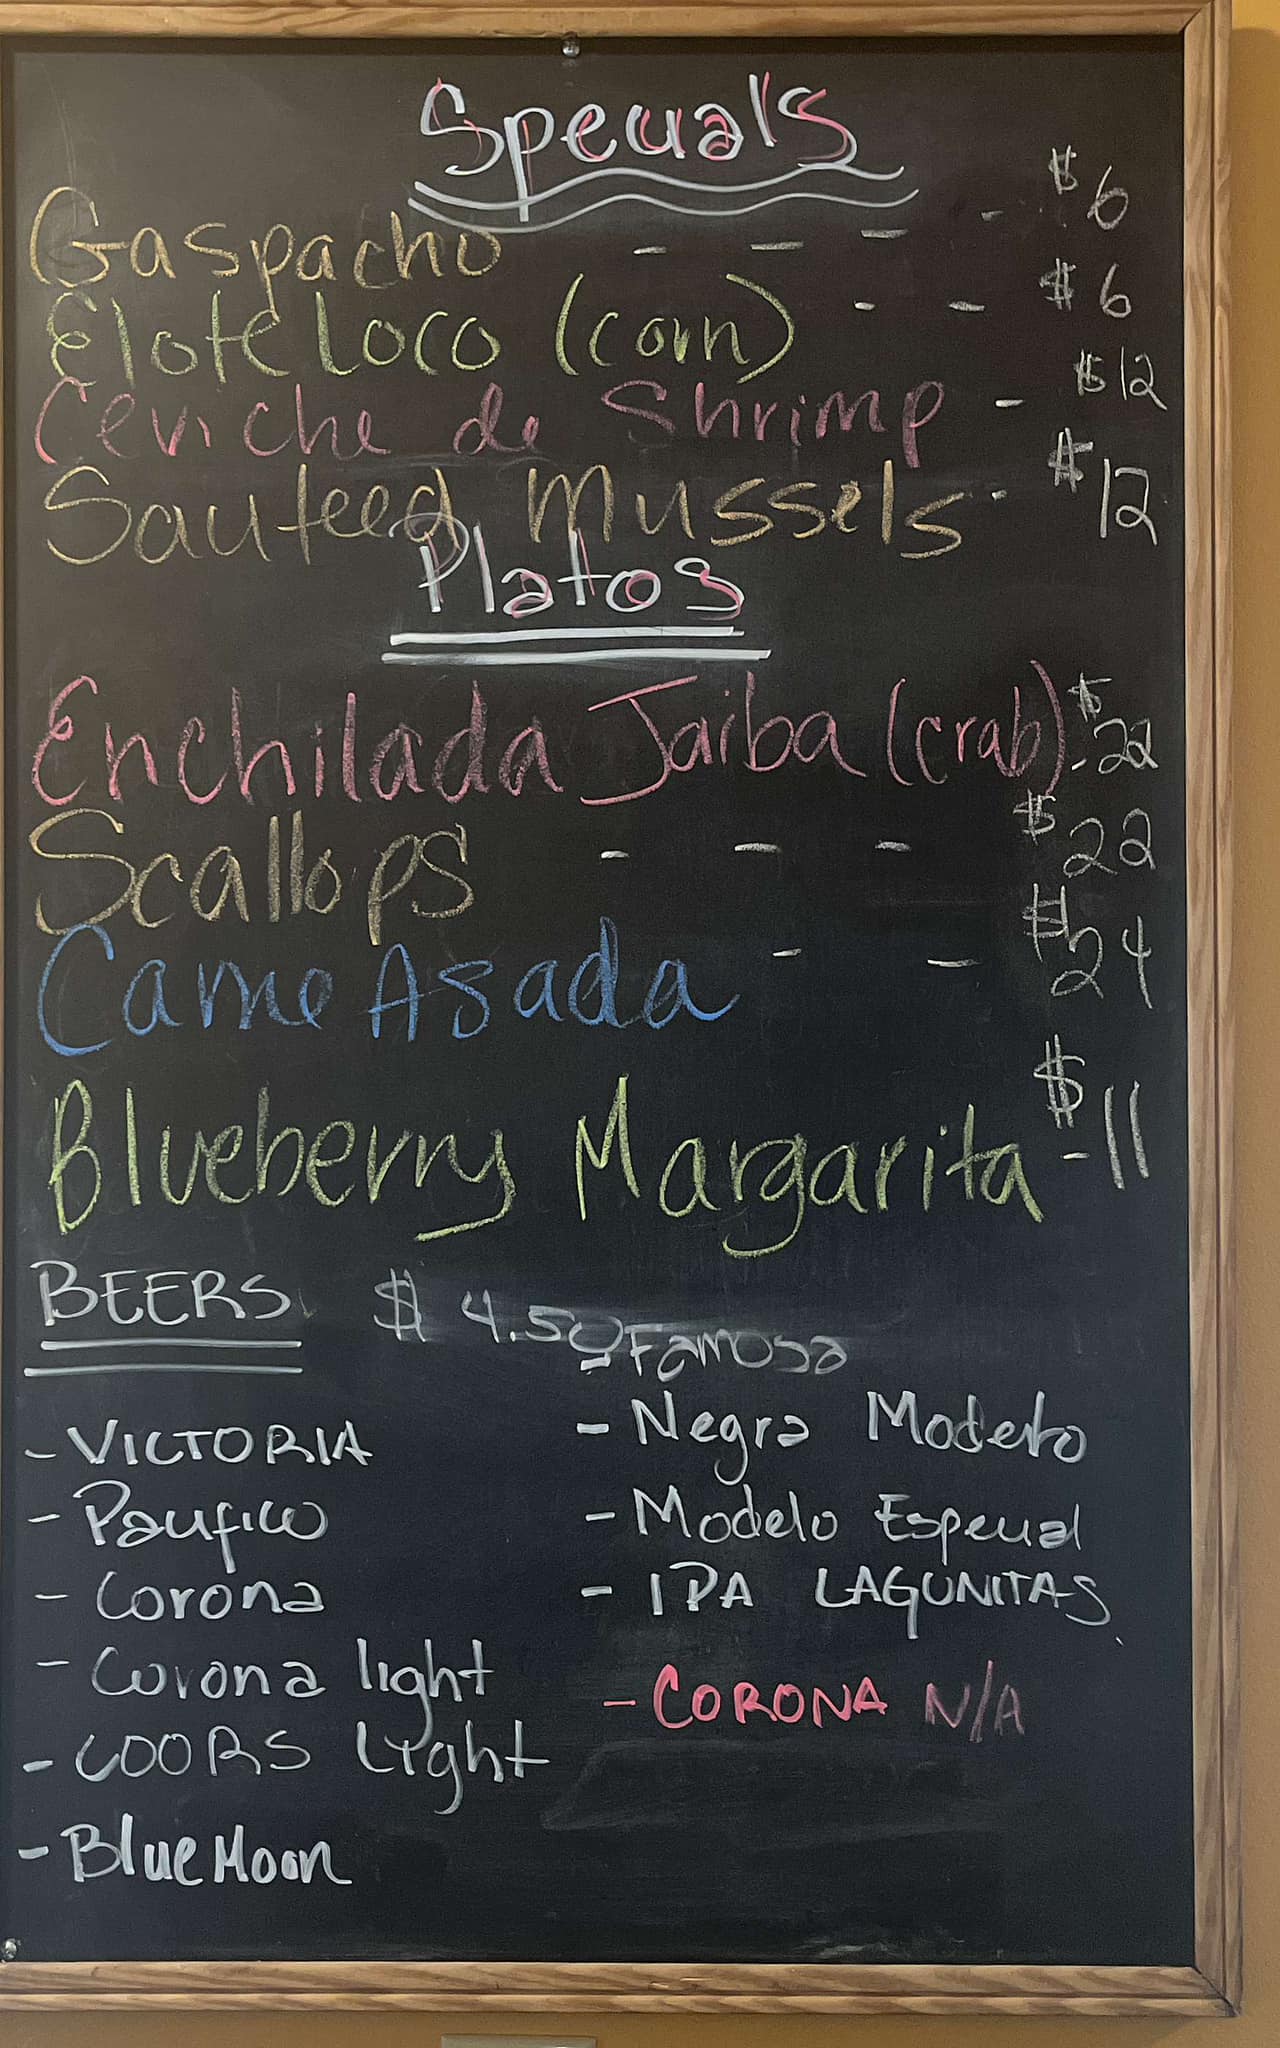 Specials
Gaspacho - - - - $6
Elote Loco (corn) - - $6
Ceviche de Shrimp - $12
Sauteed Mussels - $12
Platos
Enchilada Jaiba (crab) - $22
Scallops - - - $22
Carne Asada - - $24
Blueberry Margarita - $11
BEERS $4.50
- VICTORIA
- Pacifico
- Corona
- Corona light
- COORS Light
- Blue Moon
- Famosa
- Negra Modelo
- Modelo Especial
- IPA LAGUNITAS
- CORONA N/A